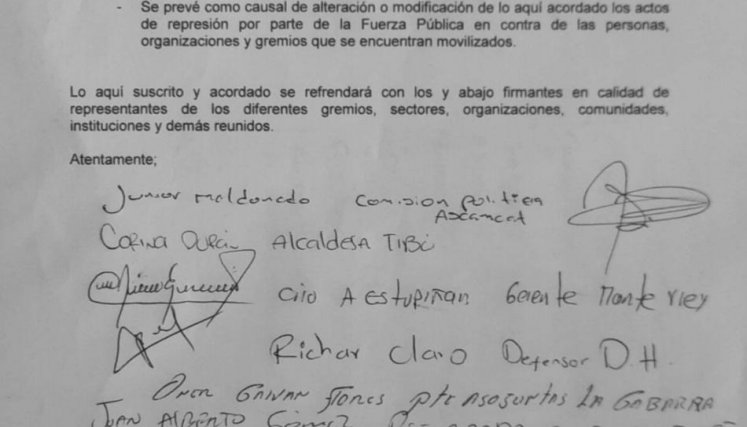 - Se prevé como causal de alteración o modificación de lo aquí acordado los actos
de represión por parte de la Fuerza Pública en contra de las personas,
organizaciones y gremios que se encuentran movilizados.
Lo aquí suscrito y acordado se refrendará con los y abajo firmantes en calidad de
representantes de los diferentes gremios, sectores, organizaciones, comunidades,
instituciones y demás reunidos.
Atentamente;
Junior maldonado Comision politica
Ascamcat
Corina Durán Alcaldesa TIBÚ
Ciro A Estupiñan Gerente Monte
Richar Claro Defensor D.H.
Galvan Flores pte Asojuntas LA GABARRA
JUAN ALBERTO Gómez